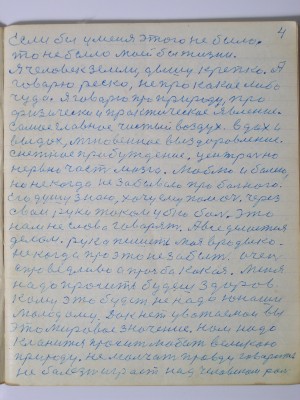 4
Если бы у меня этого не было.
то не было мой бы жизни.
Я человек земли, дышу крепко. Я
говарю резко, не про какое либо
чудо. Я говарю про природу, про
физически и практическое явление.
Самае главное чистый воздух. Вдох и
выдох, мгновенное выздоровление.
снежное пробуждение, централно
нервно часть мозга. Люблю и болею,
но некогда не забываю про больного.
Его душу знаю, хочу ему помоч. через
свои руки током убью бол. Это
нам не слова говарят. А все делается
делом. рука пишет моя вродвеко.
некогда про это не забыт. очен
справедливо а просба какая. Меня
надо просить будеш здоров.
Кому это будет не надо юнаши
молодому. Да нет уважаемои вы
это мировое значение. Нам надо
кланится просит любит великою
природу. не молчат правду говарить
не болезн играет над человеком рол